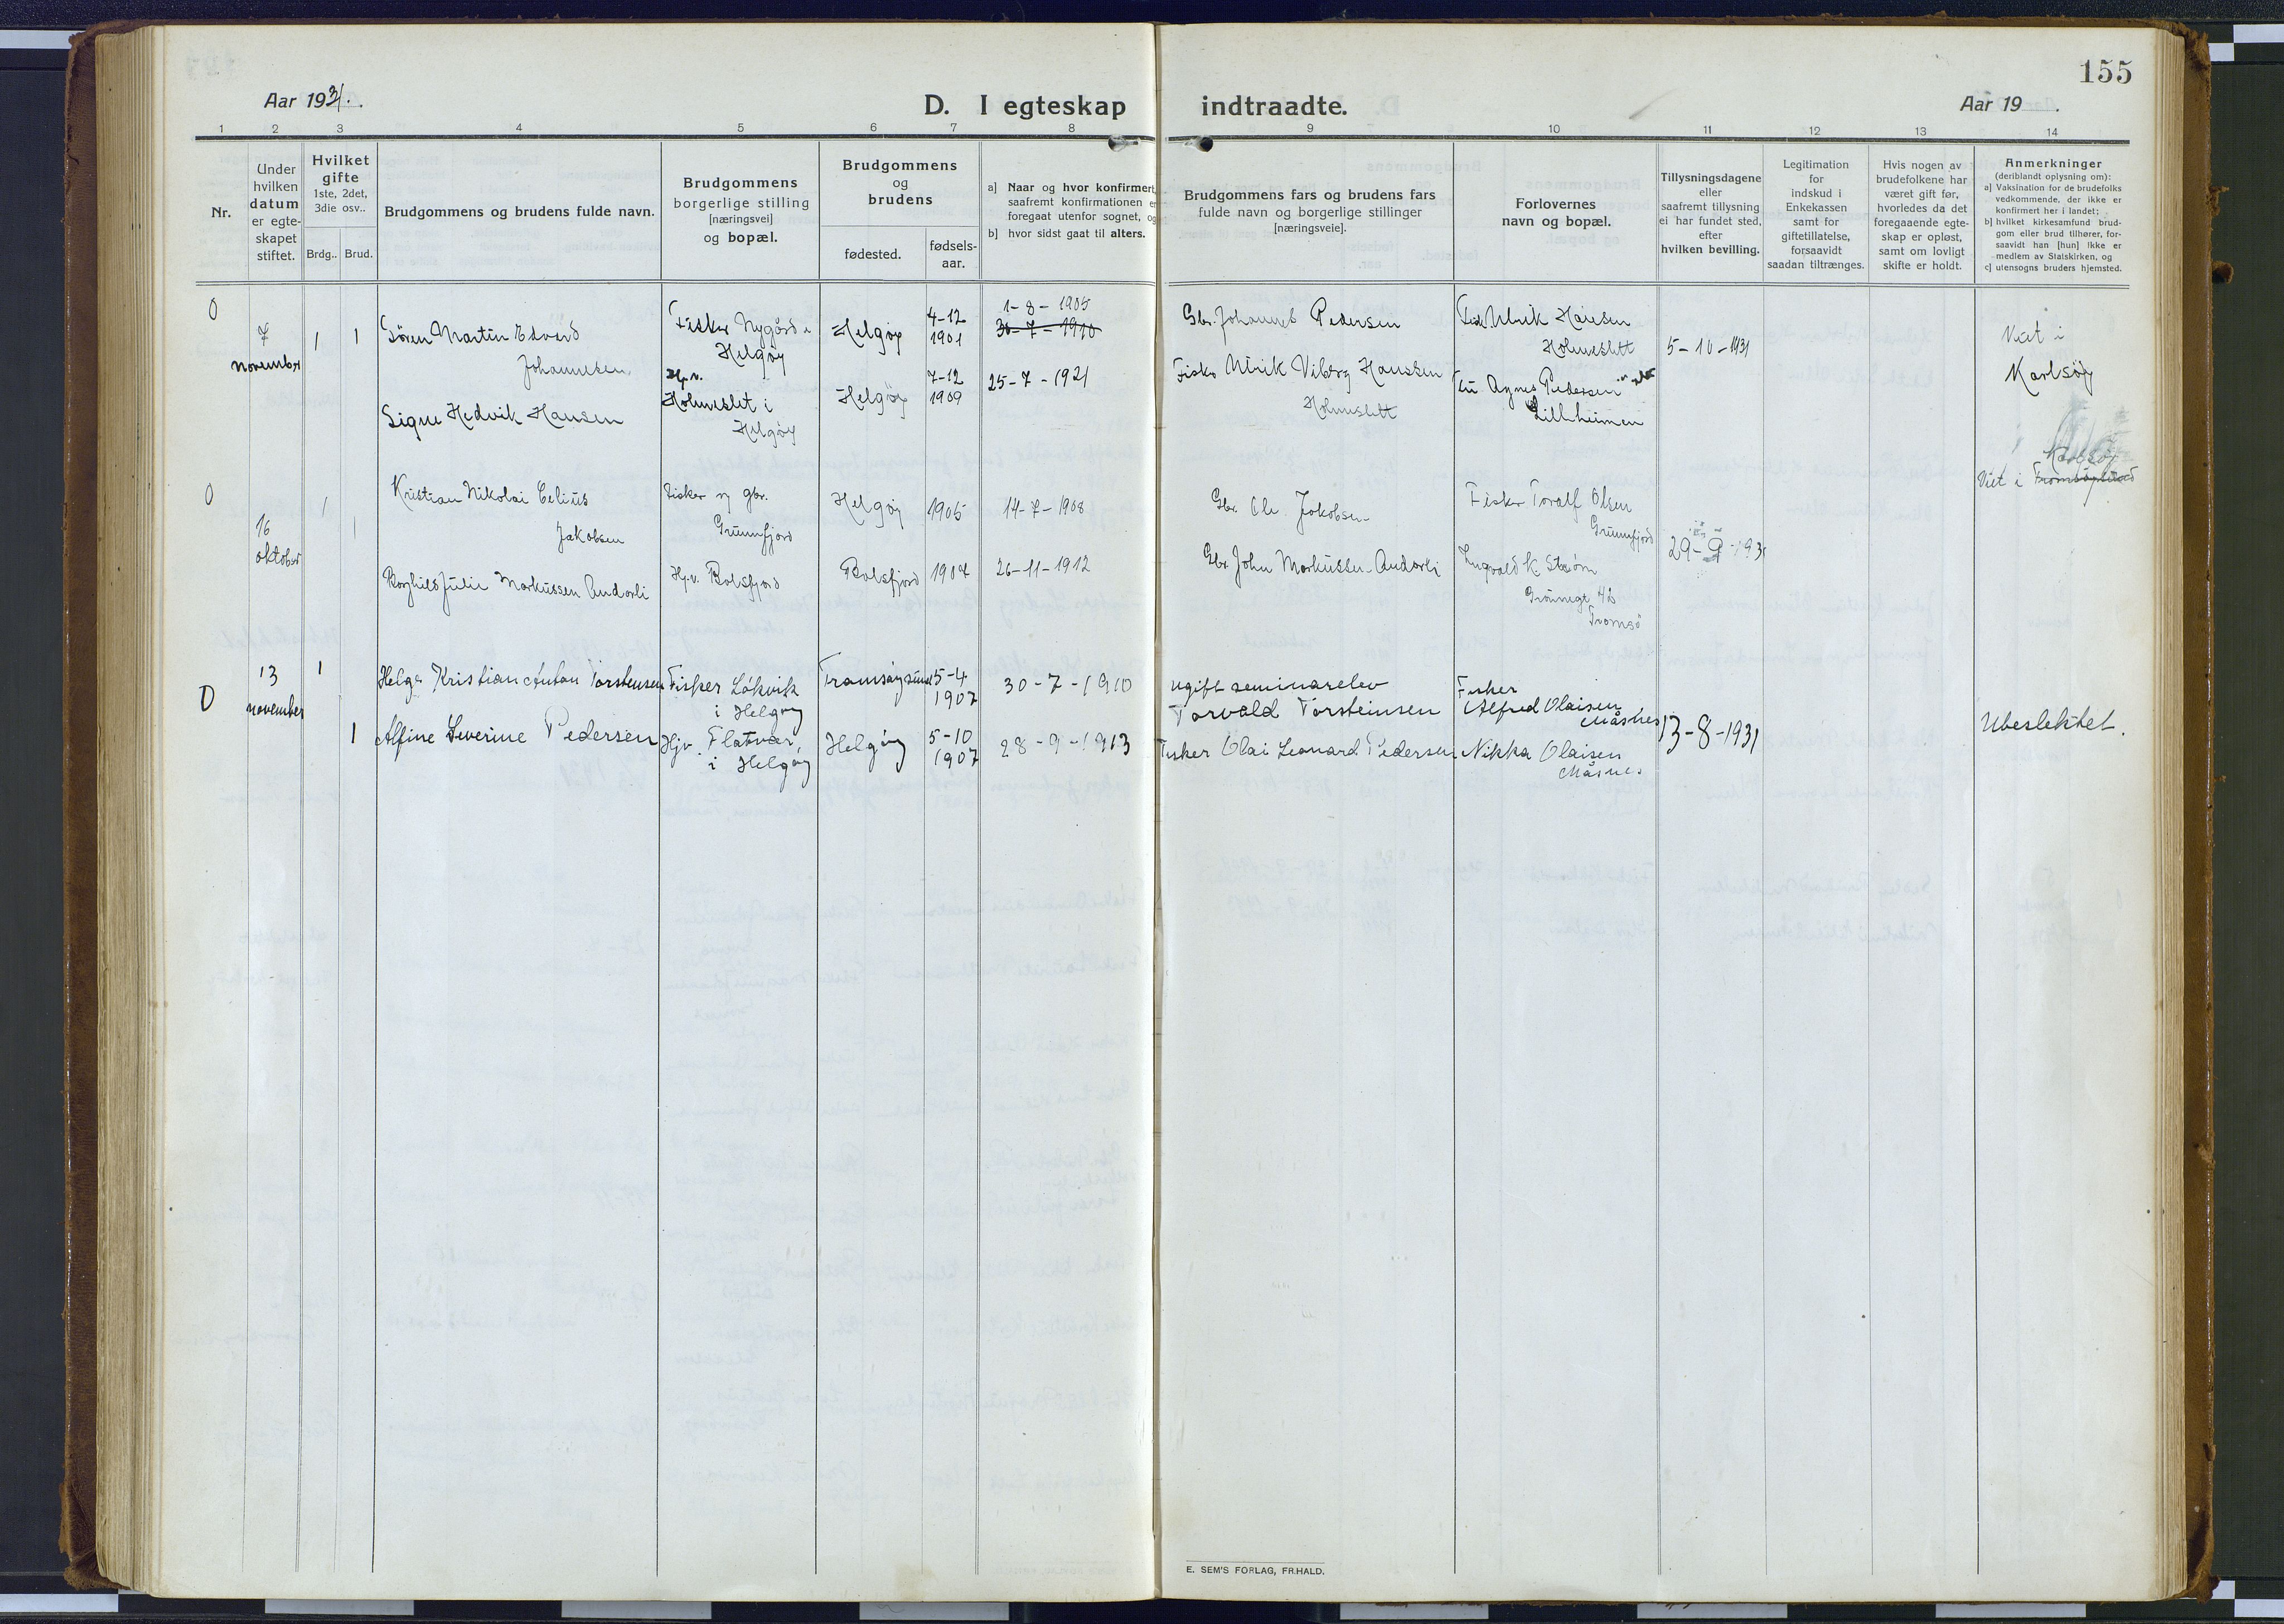 155
Aar 1931.
D. I egteskap indtraadte.
Aar 19 .
1 2 3 4 5 6 7 8 9 10 11 12 13 14
Nr.
Under
hvilken
datum
er egte-
skapet
stiftet.
Hvilket
gifte
1ste, 2det,
3die osv..
Brdg.. Brud.
Brudgommens og brudens fulde navn.
Brudgommens
borgerlige stilling
[næringsvei]
og bopæl.
Brudgommens
og
brudens
fødested.
fødsels-
aar.
a] Naar og hvor konfirmert,
saafremt konfirmationen er
foregaat utenfor sognet, og
b] hvor sidst gaat til alters.
Brudgommens fars og brudens fars
fulde navn og borgerlige stillinger
[næringsveie].
Forlovernes
navn og bopæl.
Tillysningsdagene
eller
saafremt tillysning
ei har fundet sted,
efter
hvilken bevilling.
Legitimation
for
indskud i
Enkekassen
samt for
giftetillatelse,
forsaavidt
saadan tiltrænges.
Hvis nogen av
brudefolkene har
været gift før,
hvorledes da det
foregaaende egte-
skap er opløst,
samt om lovligt
skifte er holdt.
Anmerkninger
(deriblandt oplysning om):
a] Vaksination for de brudefolks
vedkommende, der ikke er
konfirmert her i landet;
b] hvilket kirkesamfund brud-
gom eller brud tilhører, for-
saavidt han [hun] ikke er
medlem av Statskirken, og
c] utensogns bruders hjemsted.
0
7
november
1 1
Sören Martin Edvard
Johannesen.
Fisker Nygård i
Helgøy
Helgøy
4-12
1901
1-8-1905
30-7-1910
Gbr. Johannes Pedersen
Fisk Ulrik Hansen
Holmeslett
5-10-1931
Viet i
Karlsøy
Signe Hedvik Hansen
Hj.v.
Holmeslet i
Helgøy
Helgøy
7-12
1909
25-7-1921
Fisker Ulrik Viberg Hanssen
Holmeslett
Fru Agnes Pedersen
Lillheimen
0
16
oktober
1 1
Kristian Nikolai Celius
Jakobsen
Fisker og gbr.
Grunnfjord
Helgøy
1905
14-7-1908
Gbr. Ole Jakobsen
Fisker Toralf Olsen
Grunnfjord
29-9-1931
Karlsøy
Viet i Tromsøysund
Borghild Julie Markussen Andorli
Hj.v. Balsfjord
Balsfjord
1904
26-11-1912
Gbr. John Markussen Andorli
Ingvald K Strøm
Grønnegt 42
Tromsö
0
13
november
1
Helge Kristian Anton Torsteinsen
Fisker Lökvik
i Helgøy
Tromsøysund
5-4
1907
30-7-1910
ugift seminarelev
Torvald Torsteinsen
Fisker
Alfred Olaisen
Måsnes
13-8-1931
Ubeslektet.
1
Alfine Severine Pedersen
Hjv. Flatvær,
i Helgøy
Helgøy
5-10
1907
28-9-1913
Fisker Olai Leonard Pedersen
Nikka Olaisen
Måsnes
E. SEM'S FORLAG, FR.HALD.